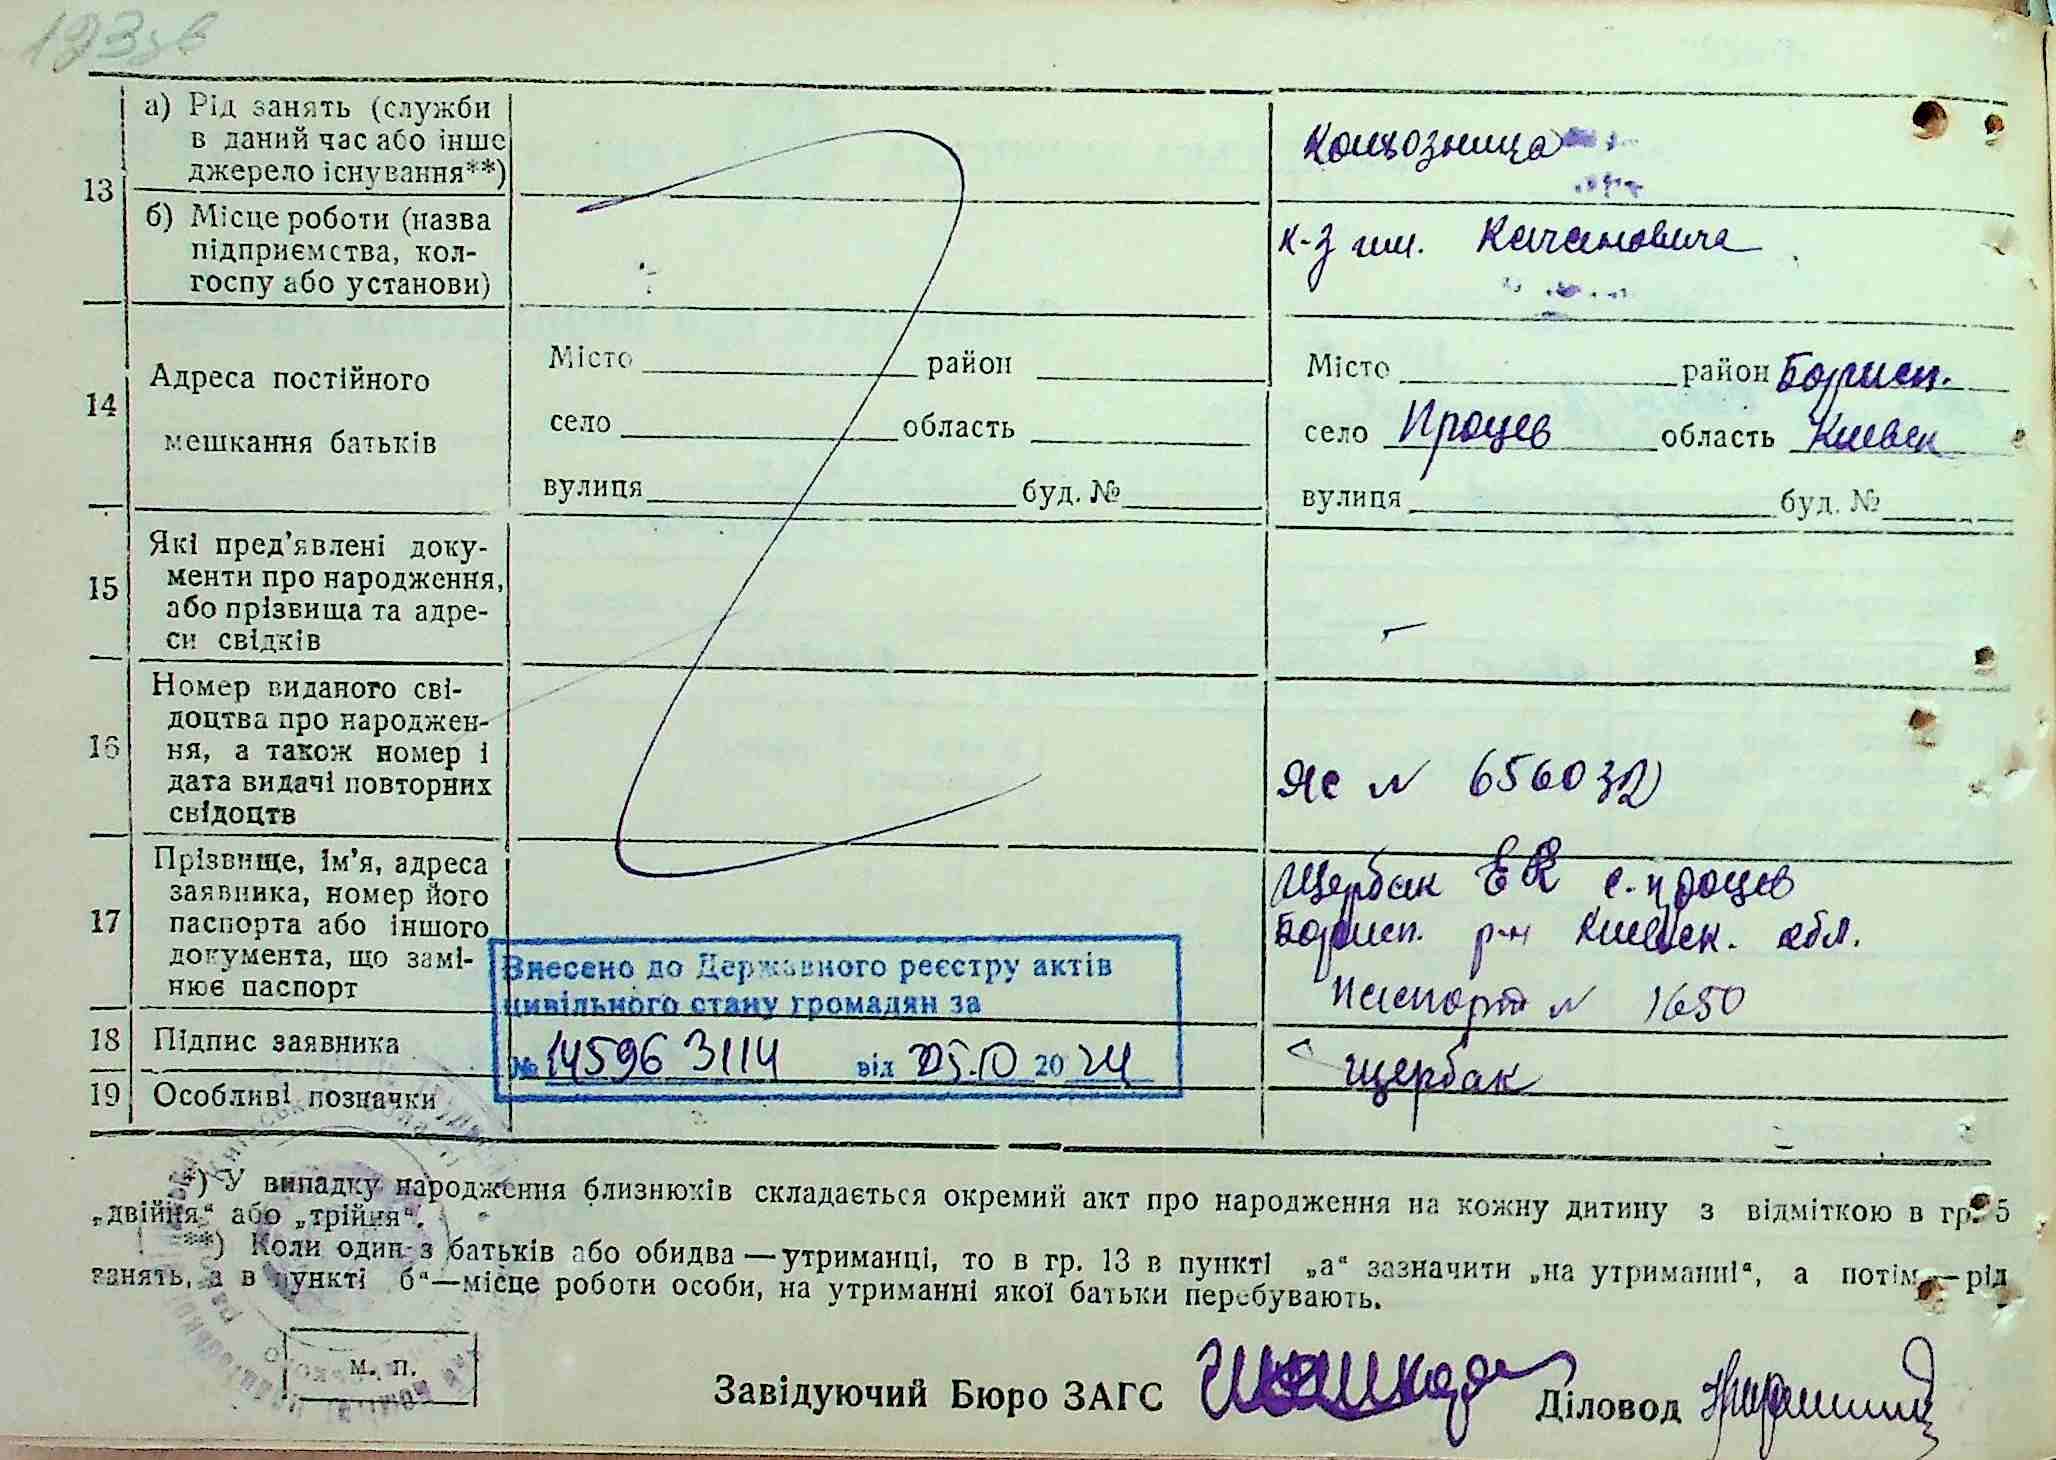 193зв
13
а) Рід занять (служби
в даний час або інше
джерело існування**)
Колгозница
б) Місце роботи (назва
підприємства, кол-
госпу або установи)
к-з им. Качановича
14
Адреса постійного
мешкання батьків
Місто район
село область
вулиця буд. №
Місто район Борисп.
село Процев область Киевск
вулиця буд. №
15
Які пред'явлені доку-
менти про народження,
або прізвища та адре-
си свідків
–
16
Номер виданого сві-
доцтва про народжен-
ня, а також номер і
дата видачі повторних
свідоцтв
ЯС N 656032
17
Прізвище, ім'я, адреса
заявника, номер його
паспорта або іншого
документа, що замі-
нює паспорт
Щербак Е К с. Процев
Борисп. р-н Киевск. обл.
Паспорт N 1650
Внесено до Державного реєстру актів
цивільного стану громадян за
№ 14596 3114 від 25.10 2024
18 Підпис заявника
Щербак
19 Особливі позначки
*) У випадку народження близнюків складається окремий акт про народження на кожну дитину з відміткою в гр. 5
„двійня“ або „трійня“.
**) Коли один з батьків або обидва—утриманці, то в гр. 13 в пункті „а“ зазначити „на утриманні“, а потім—рід
занять, а в пункті б“—місце роботи особи, на утриманні якої батьки перебувають.
м. п.
Завідуючий Бюро ЗАГС Діловод